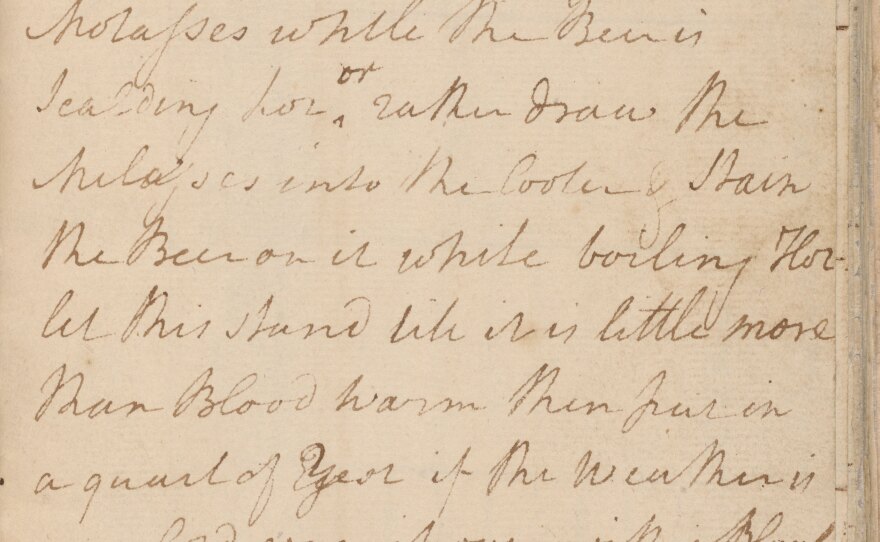 Molasses while the Beer is
Scalding hot or rather draw the
Melasses into the Cooler & Stain
the Beer on it while boiling Hot
let this stand till it is little more
than Blood warm then put in
a quart of Yest if the Weather is
Cold cover it over with a Blank